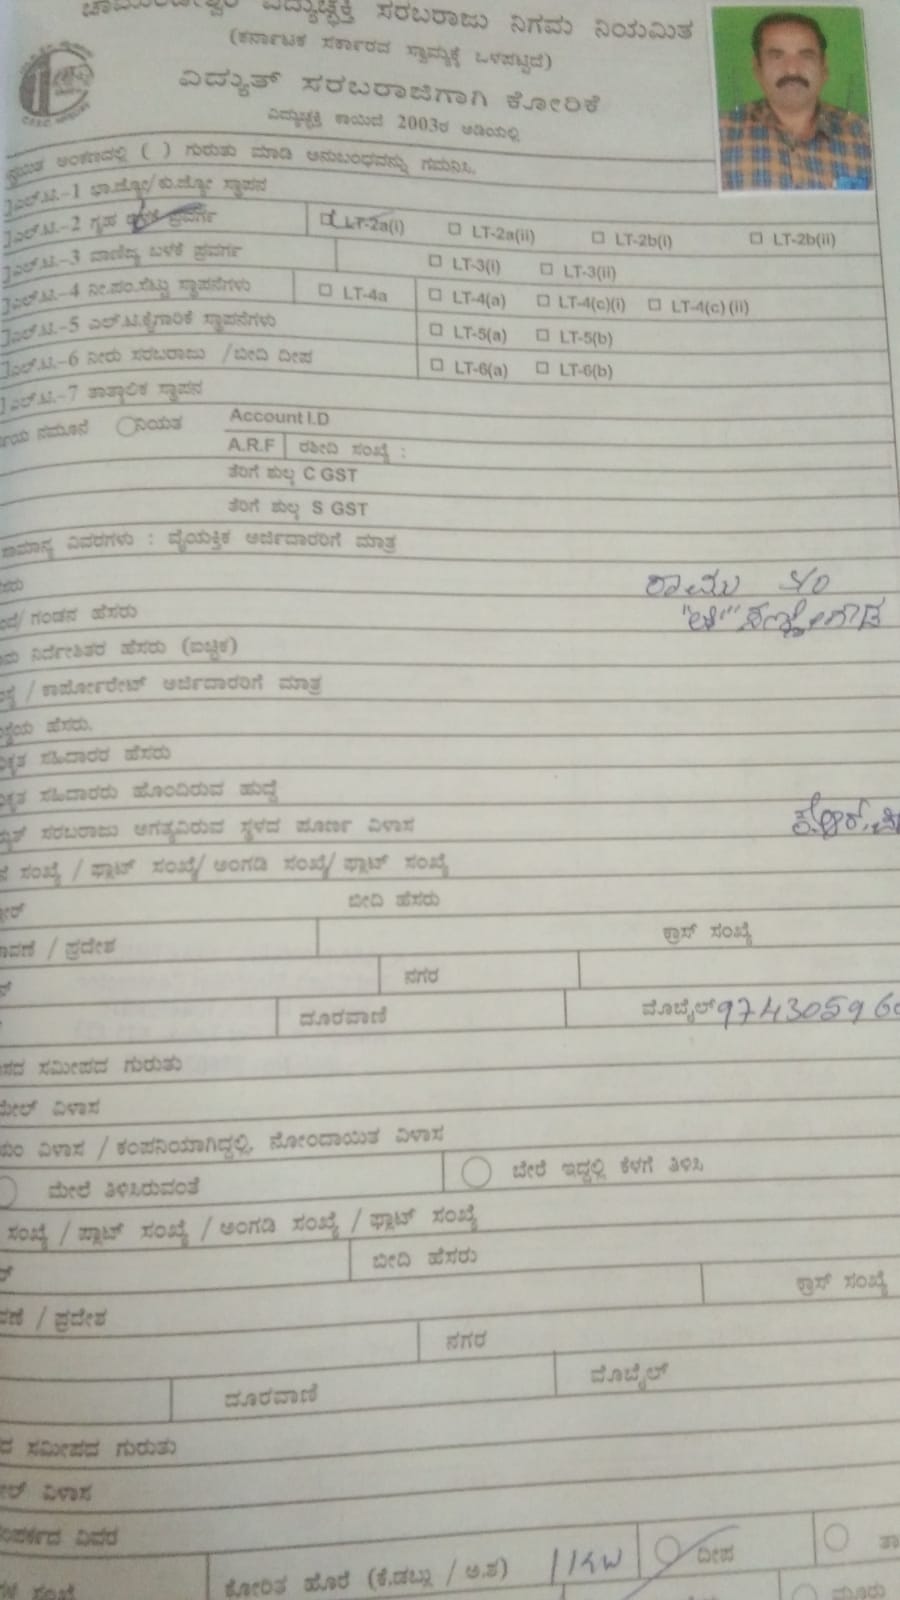 ವಿದ್ಯುಚ್ಛಕ್ತಿ ಸರಬರಾಜು ನಿಗಮ ನಿಯಮಿತ
(ಕರ್ನಾಟಕ ಸರ್ಕಾರದ ಸ್ವಾಮ್ಯಕ್ಕೆ ಒಳಪಟ್ಟಿದೆ)
ವಿದ್ಯುತ್ ಸರಬರಾಜಿಗಾಗಿ ಕೋರಿಕೆ
ವಿದ್ಯುಚ್ಛಕ್ತಿ ಕಾಯಿದೆ 2003ರ ಅಡಿಯಲ್ಲಿ
ಅಂಕಣದಲ್ಲಿ ( ) ಗುರುತು ಮಾಡಿ ಅನುಬಂಧವನ್ನು ಗಮನಿಸಿ.
ಎಲ್.ಟಿ.-1 ಭಾ.ಜ್ಯೋ/ಕು.ಜ್ಯೋ ಸ್ಥಾಪನ
ಎಲ್.ಟಿ.-2 ಗೃಹ ಬಳಕೆ ಪ್ರವರ್ಗ LT-2a(i) LT-2a(ii) LT-2b(i) LT-2b(ii)
ಎಲ್.ಟಿ.-3 ವಾಣಿಜ್ಯ ಬಳಕೆ ಪ್ರವರ್ಗ LT-3(i) LT-3(ii)
ಎಲ್.ಟಿ.-4 ನೀ.ಪಂ.ಸೆಟ್ಟು ಸ್ಥಾಪನೆಗಳು LT-4a LT-4(a) LT-4(c)(i) LT-4(c)(ii)
ಎಲ್.ಟಿ.-5 ಎಲ್.ಟಿ.ಕೈಗಾರಿಕೆ ಸ್ಥಾಪನೆಗಳು LT-5(a) LT-5(b)
ಎಲ್.ಟಿ.-6 ನೀರು ಸರಬರಾಜು /ಬೀದಿ ದೀಪ LT-6(a) LT-6(b)
ಎಲ್.ಟಿ.-7 ತಾತ್ಕಾಲಿಕ ಸ್ಥಾಪನ
ನಮೂನೆ ನಿಯತ Account I.D
A.R.F ರಶೀದಿ ಸಂಖ್ಯೆ :
ತೆರಿಗೆ ಶುಲ್ಕ C GST
ತೆರಿಗೆ ಶುಲ್ಕ S GST
ಸಾಮಾನ್ಯ ವಿವರಗಳು : ವೈಯಕ್ತಿಕ ಅರ್ಜಿದಾರರಿಗೆ ಮಾತ್ರ
ರಾಮು S/O
ಗಂಡನ ಹೆಸರು
ನಿರ್ದೇಶಿತರ ಹೆಸರು (ಐಚ್ಛಿಕ)
/ ಕಾರ್ಪೋರೇಟ್ ಅರ್ಜಿದಾರರಿಗೆ ಮಾತ್ರ
ಹೆಸರು.
ಸಹಿದಾರರ ಹೆಸರು
ಸಹಿದಾರರು ಹೊಂದಿರುವ ಹುದ್ದೆ
ಸರಬರಾಜು ಅಗತ್ಯವಿರುವ ಸ್ಥಳದ ಪೂರ್ಣ ವಿಳಾಸ
ಸಂಖ್ಯೆ / ಫ್ಲಾಟ್ ಸಂಖ್ಯೆ/ ಅಂಗಡಿ ಸಂಖ್ಯೆ/ ಫ್ಲಾಟ್ ಸಂಖ್ಯೆ
ಬೀದಿ ಹೆಸರು
/ ಪ್ರದೇಶ ಕ್ರಾಸ್ ಸಂಖ್ಯೆ
ನಗರ
ದೂರವಾಣಿ ಮೊಬೈಲ್
ಸಮೀಪದ ಗುರುತು
ವಿಳಾಸ
ವಿಳಾಸ / ಕಂಪನಿಯಾಗಿದ್ದಲ್ಲಿ, ನೋಂದಾಯಿತ ವಿಳಾಸ
ಮೇಲೆ ತಿಳಿಸಿರುವಂತೆ ಬೇರೆ ಇದ್ದಲ್ಲಿ ಕೆಳಗೆ ತಿಳಿಸಿ
ಸಂಖ್ಯೆ / ಪ್ಲಾಟ್ ಸಂಖ್ಯೆ / ಅಂಗಡಿ ಸಂಖ್ಯೆ / ಫ್ಲಾಟ್ ಸಂಖ್ಯೆ
ಬೀದಿ ಹೆಸರು
/ ಪ್ರದೇಶ ಕ್ರಾಸ್ ಸಂಖ್ಯೆ
ನಗರ
ದೂರವಾಣಿ ಮೊಬೈಲ್
ಸಮೀಪದ ಗುರುತು
ವಿಳಾಸ
ವಿವರ
ಸಂಖ್ಯೆ ಕೋರಿತ ಹೊರೆ (ಕೆ.ಡಬ್ಲು / ಅ.ಶ) 1 KW ದೀಪ
ಮೂರು